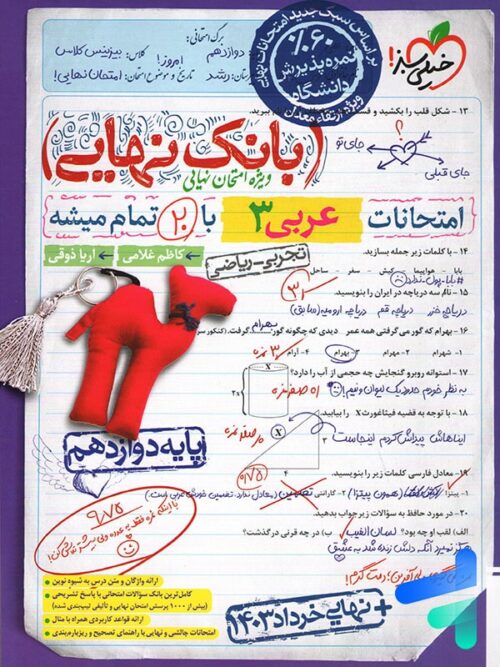 برگ امتحانی:
دوازدهم
کلاس: بیزینس کلاس
امروز!
تاریخ و موضوع امتحان: امتحان نهایی!
رشد
خیلی سبز!
بر اساس سبک جدید امتحانات نهایی
٪۶۰
نمره پذیرش
دانشگاه
ویژه ارتقاء معدل
۱۳ - شکل قلب را بکشید و
جای تو
؟
جای قبلی
بانک نهایی
ویژه امتحان نهایی
امتحانات عربی ۳ با ۲۰ تمام میشه
کاظم غلامی
آریا ذوقی
تجربی - ریاضی
۱۴ - با کلمات زیر جمله بسازید.
بابا - هواپیما - کیش - سفر - ساحل
#بابا_پول_ندارد
۱۵ - نام سه دریاچه در ایران را بنویسید.
دریاچه خزر دریاچه قم دریاچه ارومیه (سابق)
۱۶ - بهرام که گور می‌گرفتی همه عمر دیدی که چگونه گور بهرام گرفت. (کنکور سر
۱ - شهرام ۲ - مهرام ۳ - بهرام ۴ - آرام
۱۷ - استوانه روبرو گنجایش چه حجمی از آب را دارد؟
به نظر خودم حدود یک لیوان و نیم!
X
2x
۱۸ - با توجه به قضیه فیثاغورث X را بیابید.
ایناهاش پیداش کردم اینجاست
X
۳
۴
پایه دوازدهم
۱۹ - معادل فارسی کلمات زیر را بنویسید.
۱ - پیتزا
(همون پیتزا)
۲ - گارانتی
تضمین
۲۰ - در مورد حافظ به سؤالات زیر جواب بدهید.
الف) لقب او چه بود؟ لسان الغیب ب) در چه قرنی در گذشت؟
هرگز نمیرد آنکه دلش زنده شد به عشق
۹/۷۵
ارائه واژگان و متن درس به شیوه نوین
کامل‌ترین بانک سؤالات امتحانی با پاسخ تشریحی
(بیش از ۱۰۰۰ پرسش امتحان نهایی و تألیفی تیپ‌بندی شده)
ارائه قواعد کاربردی همراه با مثال
امتحانات چالشی و نهایی با راهنمای تصحیح و ریزبارم‌بندی
+ نهایی خرداد ۱۴۰۳